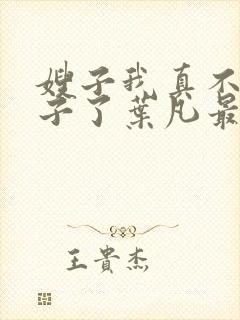 嫂子我真不
子了葉凡最
王貴杰